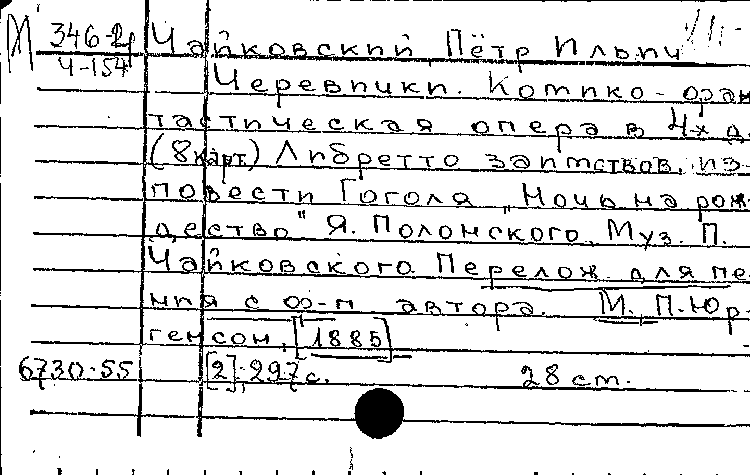 М 346-2 Чайковский, Пётр Ильич
Ч-154
Черевички. Комико-фан
тастическая опера в 4х д.
(8 карт.) Либретто заимствов. из
повести Гоголя „Ночь на рож
дество" Я. Полонского. Муз. П.
Чайковского. Перелож. для пе
ния с ф-п автора. М., П. Юр-
генсон, [1885]
6730-55 [2], 297 с. 28 см.